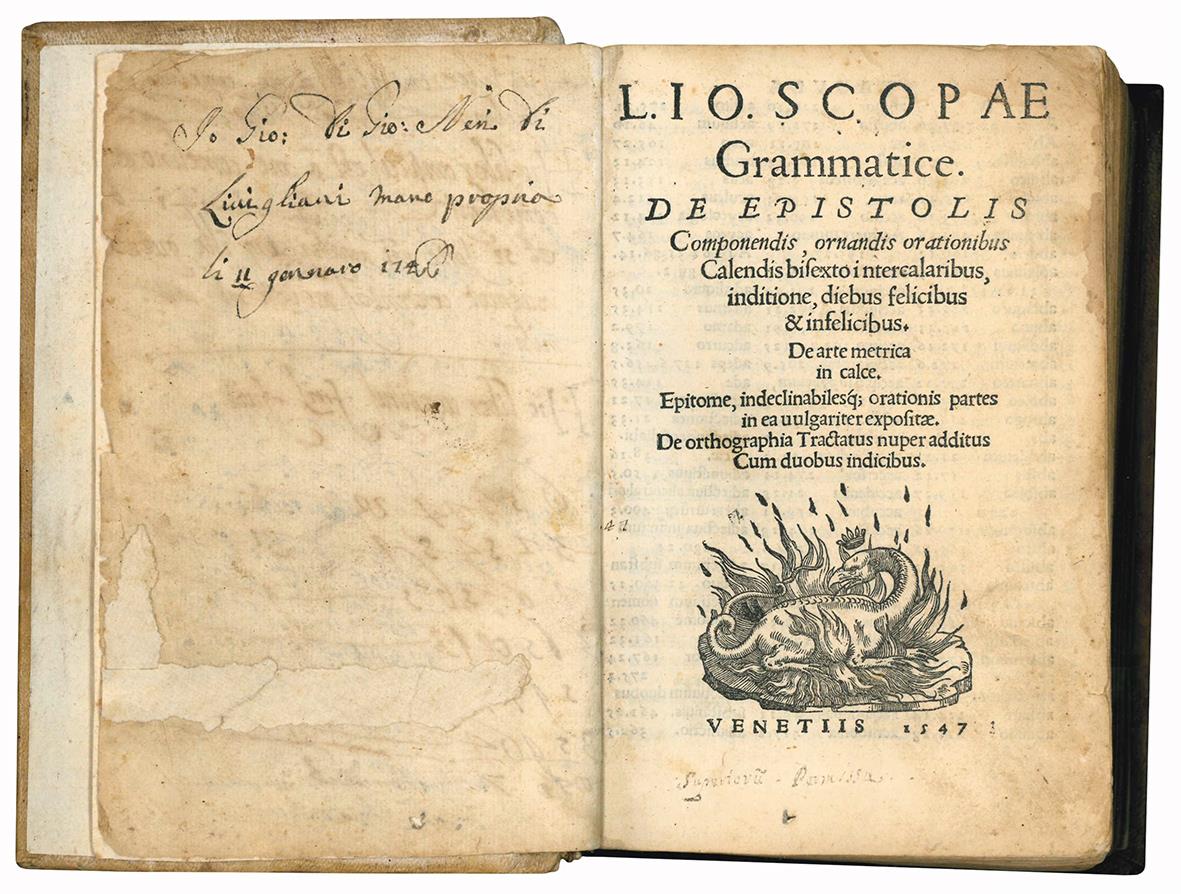 Io Gio: di Gio: Neri di
Liuigliani mano propria
li 11 gennaro
L. IO. SCOPAE
Grammatice.
DE EPISTOLIS
Componendis, ornandis orationibus
Calendis biſexto i ntercalaribus,
inditione, diebus felicibus
& infelicibus.
De arte metrica
in calce.
Epitome, indeclinabilesq; orationis partes
in ea uulgariter expoſitæ.
De orthographia Tractatus nuper additus
Cum duobus indicibus.
VENETIIS 1547